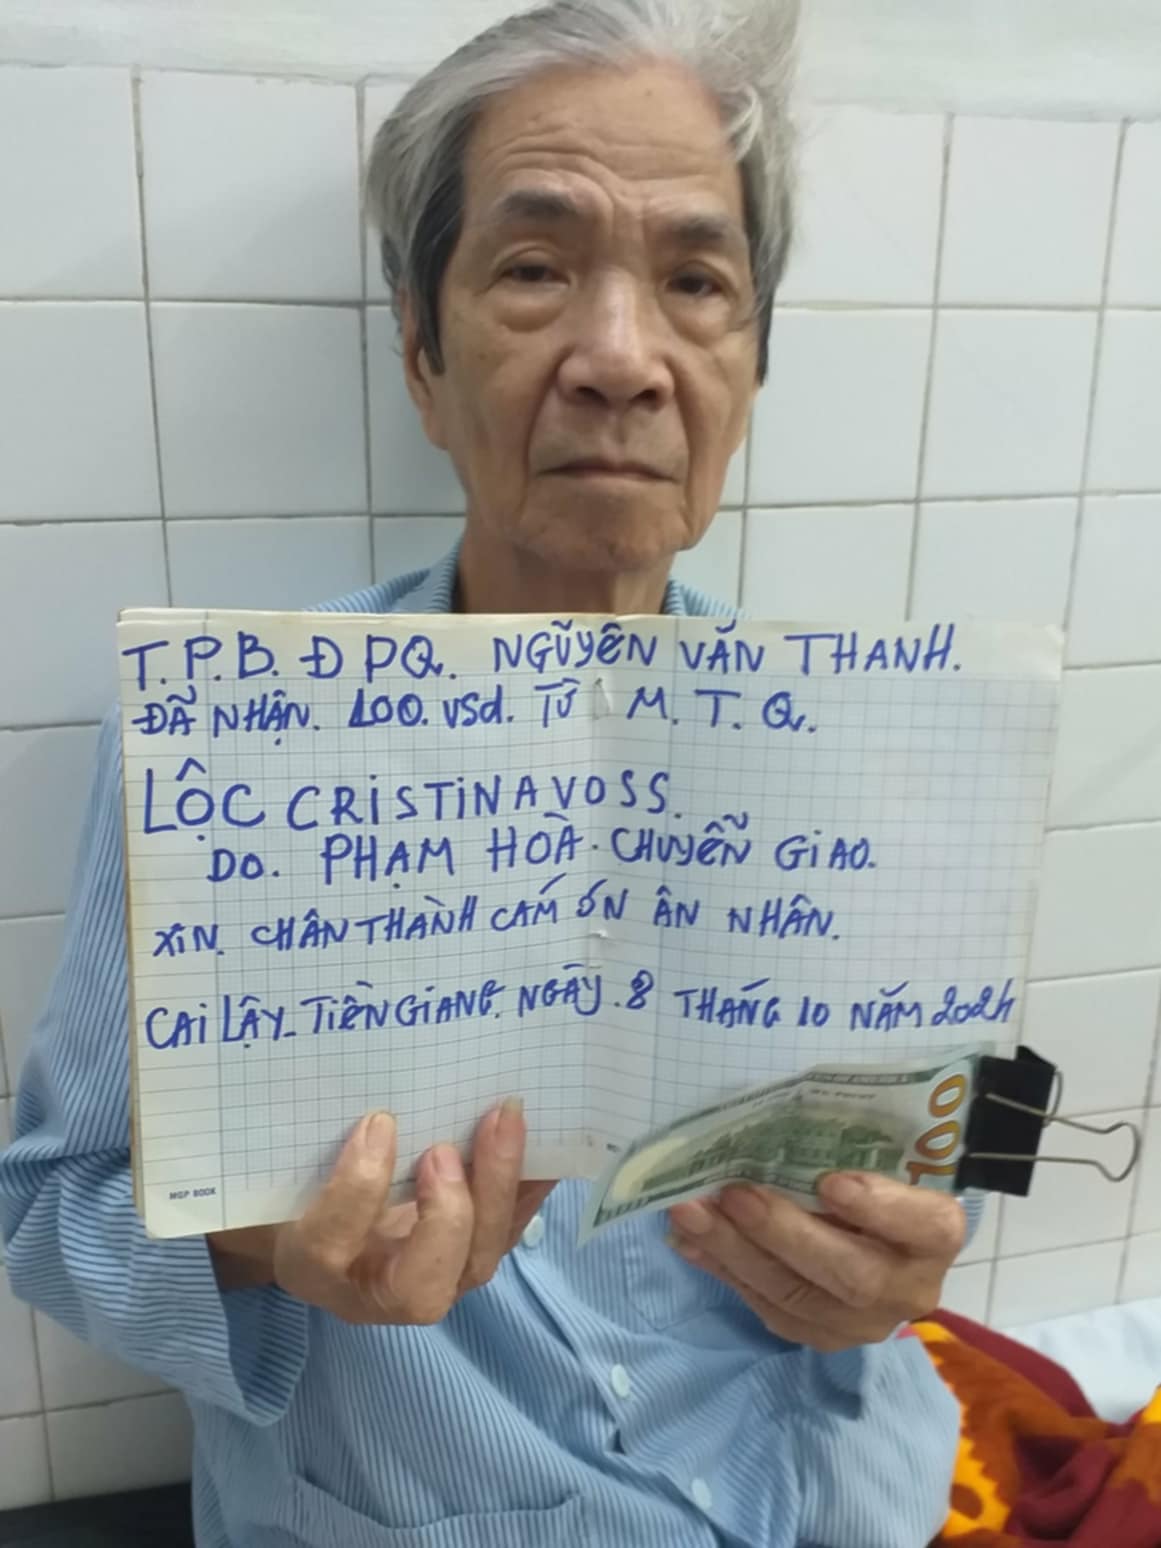 T.P.B. Đ PQ. NGŨYÊN VĂN THANH.
ĐÃ NHẬN. 100. USd. TỪ M. T. Q.
LỘC CRISTINA VOSS.
DO. PHẠM HOÀ. CHUYỄN GIAO.
XIN. CHÂN THÀNH CÁM ƠN ÂN NHÂN.
CAI LẬY_ TIỀN GIANG. NGÀY. 8 THÁNG 10 NĂM 2024
MGP BOOK
100